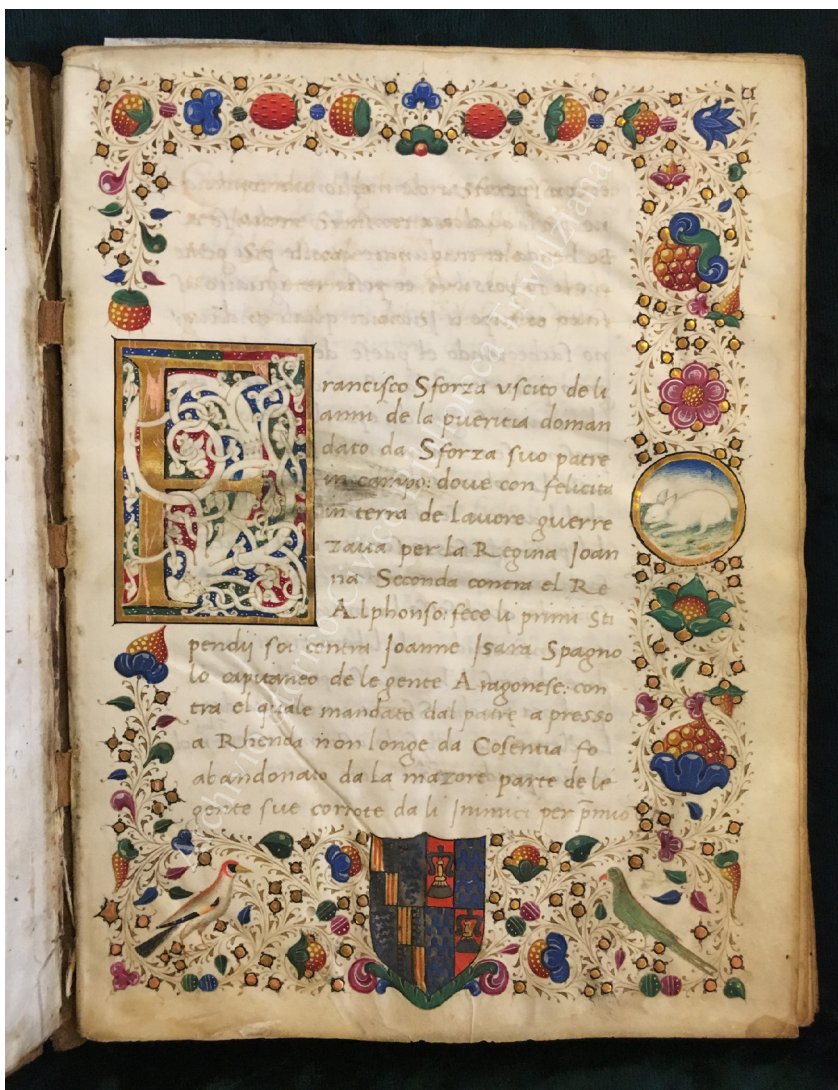 Francisco Sforza uscito de li
anni de la pueritia doman
dato da Sforza suo patre
in campo: doue con felicita
in terra de lauore guerre
zaua per la Regina Joan
na Seconda contra el Re
Alphonso: fece li primi sti
pendij soi contra Joanne Isara Spagno
lo capitaneo de le gente Aragonese: con
tra el quale mandato dal patre a presso
a Rhenda non longe da Cosentia fo
abandonato da la mazore parte de le
gente sue corrote da li Inimici per p̄mio